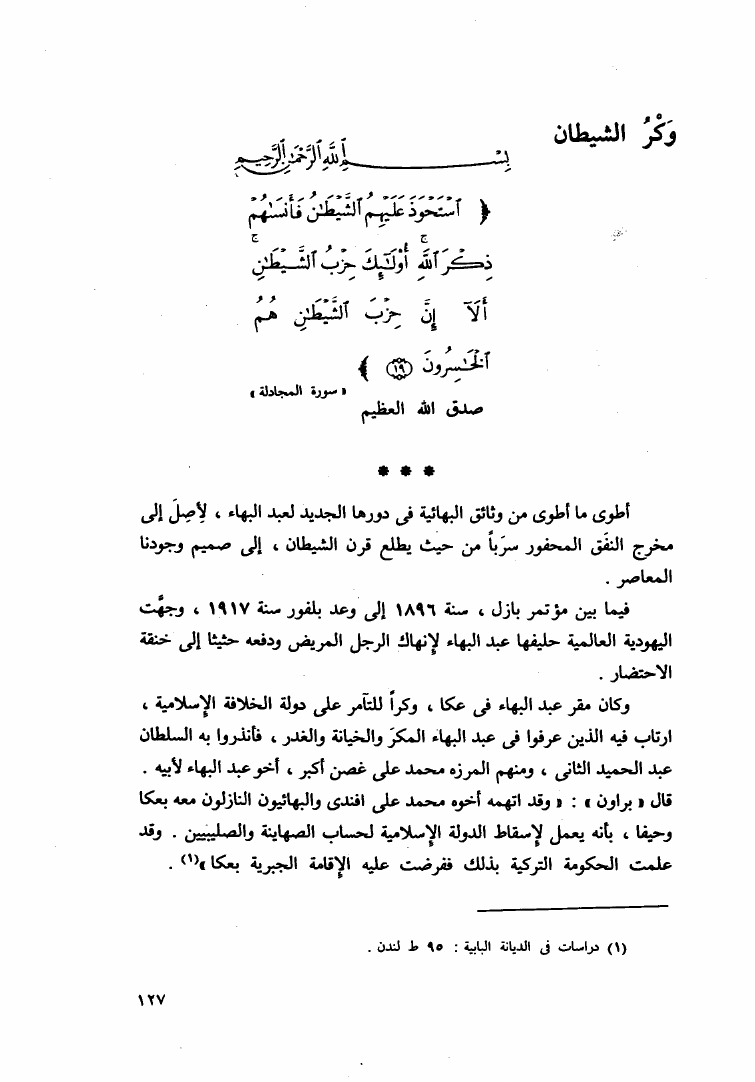 وَكْرُ الشيطان
بِسْمِ ٱللَّهِ ٱلرَّحْمَٰنِ ٱلرَّحِيمِ
﴿ ٱسْتَحْوَذَ عَلَيْهِمُ ٱلشَّيْطَٰنُ فَأَنسَىٰهُمْ
ذِكْرَ ٱللَّهِ ۚ أُو۟لَٰٓئِكَ حِزْبُ ٱلشَّيْطَٰنِ ۚ
أَلَآ إِنَّ حِزْبَ ٱلشَّيْطَٰنِ هُمُ
ٱلْخَٰسِرُونَ ١٩ ﴾
« سورة المجادلة »
صدق الله العظيم
* * *
أطوى ما أطوى من وثائق البهائية فى دورها الجديد لعبد البهاء ، لأصِلَ إلى
مخرج النفَق المحفور سرَباً من حيث يطلع قرن الشيطان ، إلى صميم وجودنا
المعاصر .
فيما بين مؤتمر بازل ، سنة ١٨٩٦ إلى وعد بلفور سنة ١٩١٧ ، وجهَّت
اليهودية العالمية حليفها عبد البهاء لإنهاك الرجل المريض ودفعه حثيثا إلى خنقة
الاحتضار .
وكان مقر عبد البهاء فى عكا ، وكراً للتآمر على دولة الخلافة الإسلامية ،
ارتاب فيه الذين عرفوا فى عبد البهاء المكرَ والخيانة والغدر ، فأنذروا به السلطان
عبد الحميد الثانى ، ومنهم المرزه محمد على غصن أكبر ، أخو عبد البهاء لأبيه .
قال « براون » : « وقد اتهمه أخوه محمد على افندى والبهائيون النازلون معه بعكا
وحيفا ، بأنه يعمل لإسقاط الدولة الإسلامية لحساب الصهاينة والصليبيين . وقد
علمت الحكومة التركية بذلك ففرضت عليه الإقامة الجبرية بعكا »(١) .
(١) دراسات فى الديانة البابية : ٩٥ ط لندن .
١٢٧